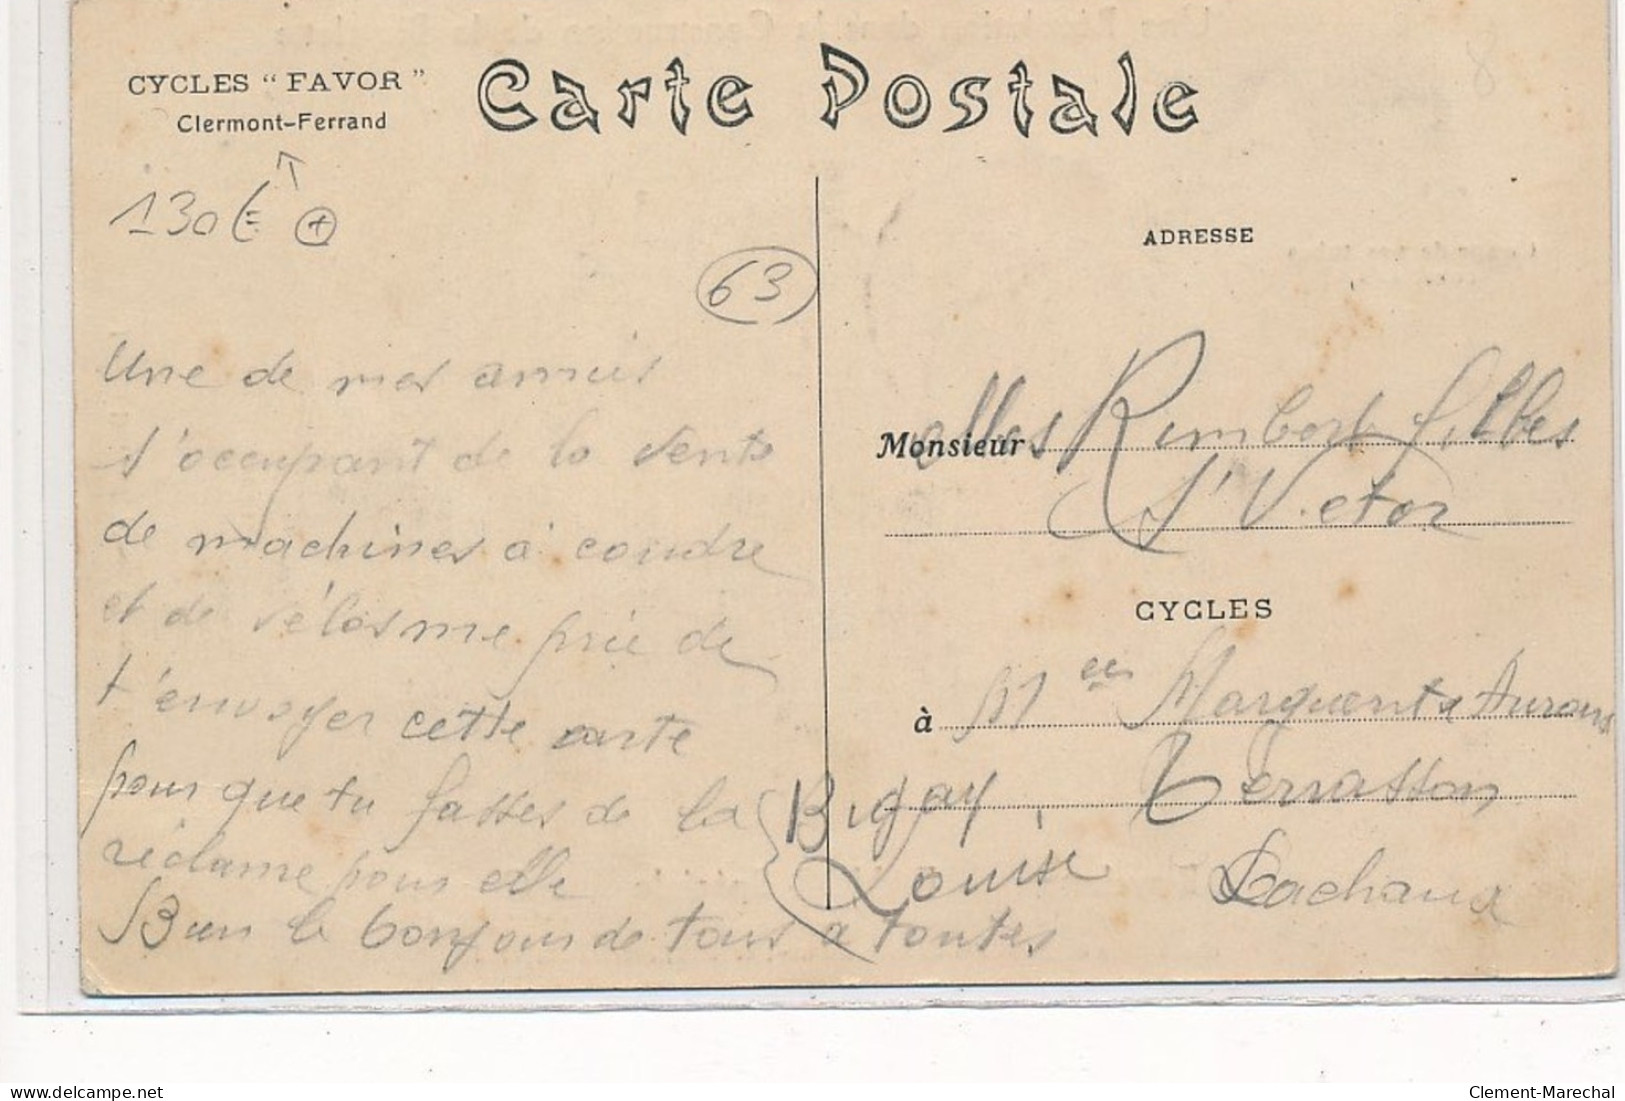 CYCLES “ FAVOR ”
Clermont-Ferrand
Carte Postale
130 € +
63
8
ADRESSE
Une de mes amies
s'occupant de la vente
de machines à coudre
et de vélos me prie de
t'envoyer cette carte
pour que tu fasses de la
réclame pour elle
Bien le bonjour de tous à toutes
Bigay
Louise
Monsieur elles Rimbert filles
St Victor
CYCLES
à Marguerite
Terrasson
Lachaux
Clement-Marechal
delcampe.net